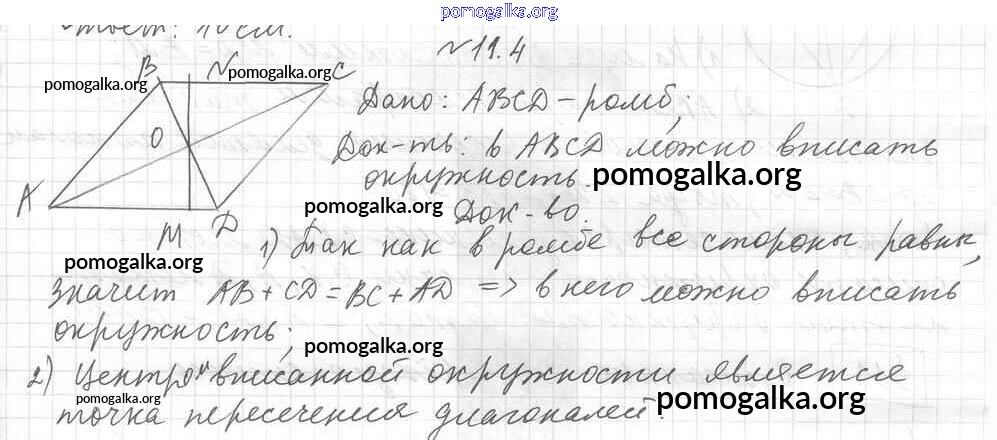 pomogalka.org
Ответ: 10 см.
N 11.4
B N pomogalka.org C
pomogalka.org
Дано: ABCD – ромб;
O
Док-ть: в ABCD можно вписать
окружность. pomogalka.org
A
pomogalka.org
Док-во.
M D
1) Так как в ромбе все стороны равны,
pomogalka.org
значит AB + CD = BC + AD => в него можно вписать
окружность;
pomogalka.org
2) Центром вписанной окружности является
точка пересечения диагоналей. pomogalka.org